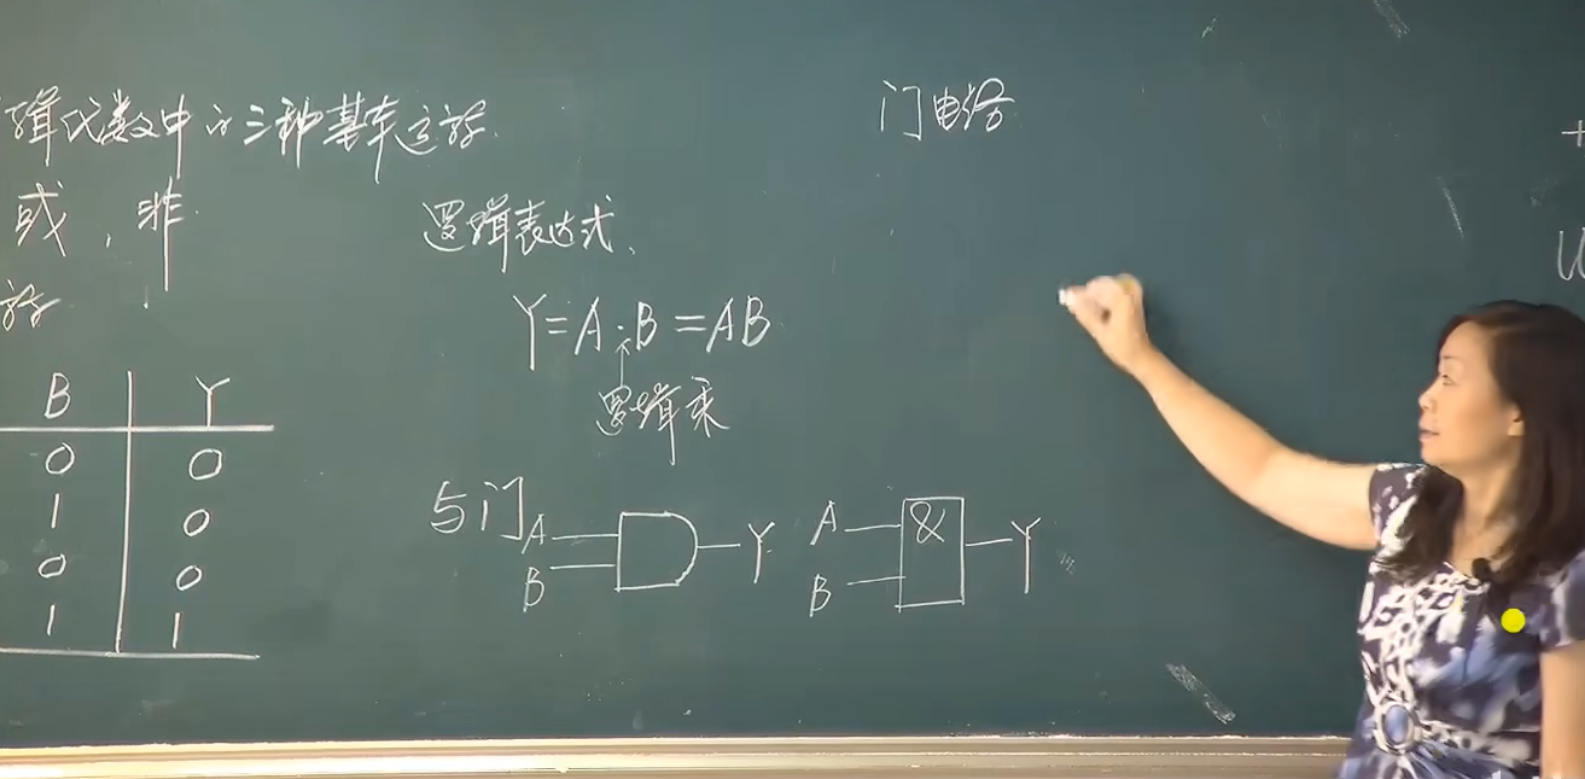 辑代数中的三种基本运算.
或, 非.
算
B Y
0 0
1 0
0 0
1 1
逻辑表达式.
Y=A·B=AB
逻辑乘
与门
A
B
Y
A
B
&
Y
门电路
+
U